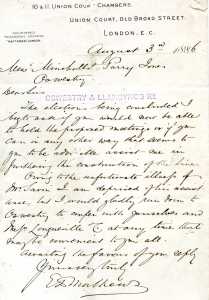 10 & 11 UNION COURT CHAMBERS,
UNION COURT, OLD BROAD STREET,
LONDON. E.C.
August 3rd 1886
Mess Minshalls & Parry Jones
Oswestry
Dear Sirs
OSWESTRY & LLANGYNOG RY
The elections being concluded I
beg to ask if you would now be able
to hold the proposed meetings or if you
can in any other way that seems to
you to be advisable assist me in
furthering the construction of the line
Owing to the unfortunate illness of
Mr Savin I am deprived of his assist
ance, but I would gladly run down to
Oswestry to confer with yourselves and
Mess Longueville & Co at any time that
may be convenient to you all.
Awaiting the favour of your reply
Yours very truly